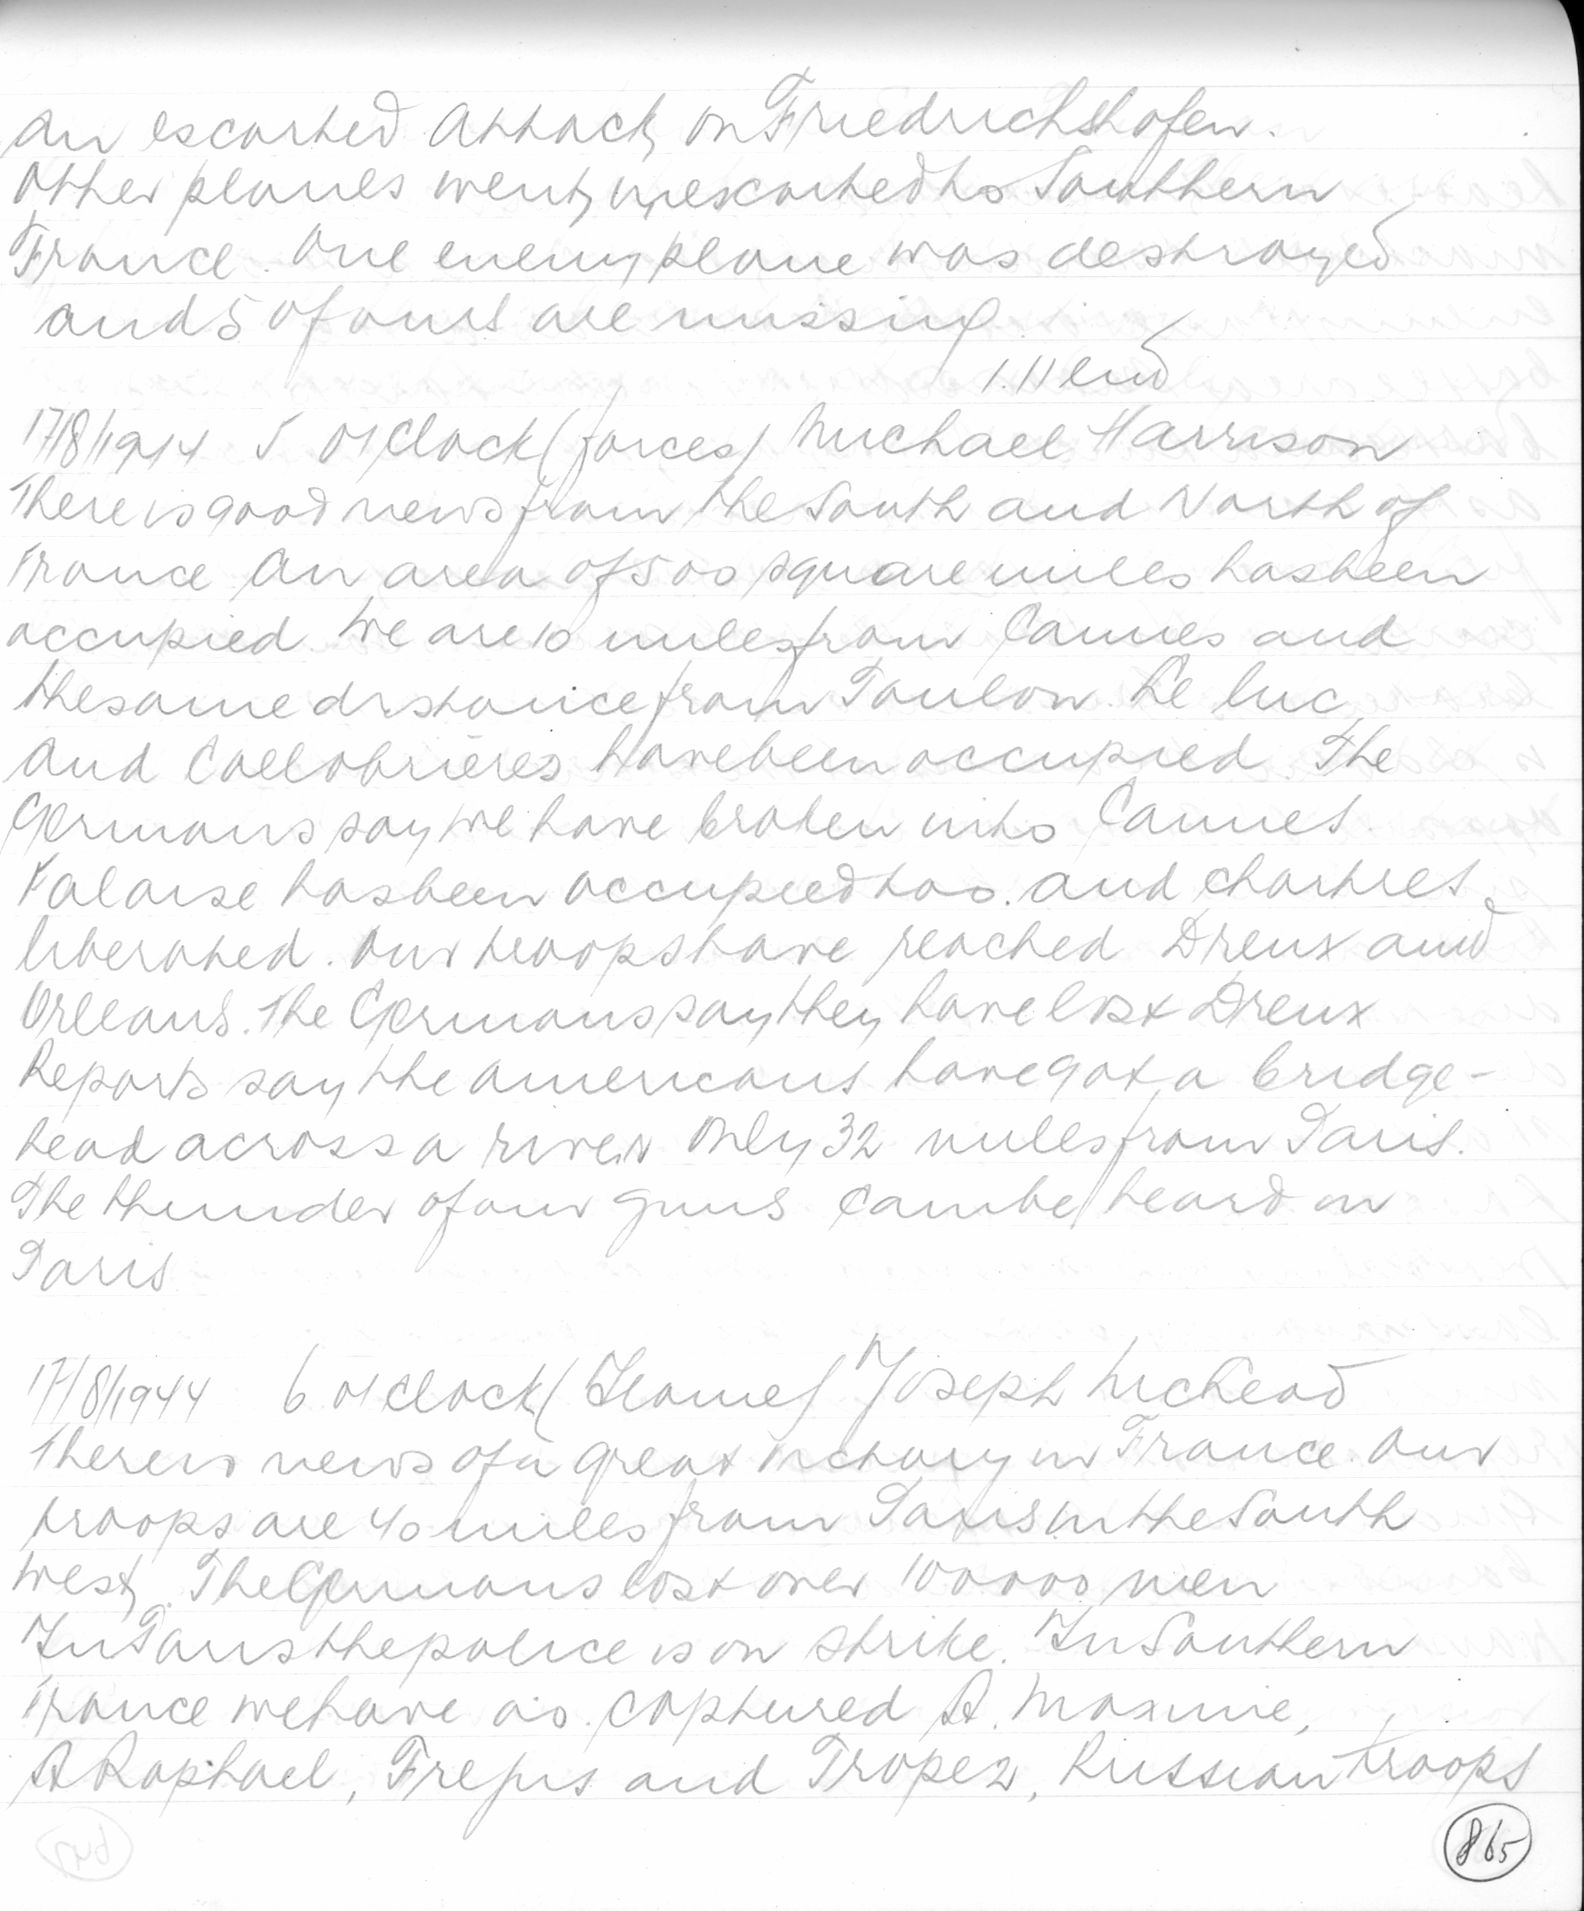 An escorted attack on Friedrichshofen.
Other planes went unescorted to Southern
France. One enemy plane was destroyed
and 5 of ours are missing
1.11 end
17/8/1944 5 o'clock (forces) Michael Harrison
There is good news from the South and North of
France An area of 500 square miles has been
occupied. We are 10 miles from Cannes and
the same distance from Toulon. Le Luc
and Collobrières have been occupied. The
Germans say we have broken into Cannes.
Falaise has been occupied too. and Chartres
liberated. Our troops have reached Dreux and
Orleans. The Germans say they have lost Dreux
Reports say the Americans have got a bridge-
head across a river only 32 miles from Paris.
The thunder of our guns can be heard in
Paris
17/8/1944 6 o'clock (Home) Joseph McLeod
There is news of a great victory in France. Our
troops are 40 miles from Paris in the South
West. The Germans lost over 100000 men
In Paris the police is on strike. In Southern
France we have a.o. captured St. Maxime,
St Raphael, Frejus and Tropez, Russian troops
865